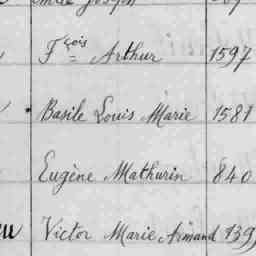 Fçois Arthur 1597
Basile Louis Marie 1581
Eugène Mathurin 840
Victor Marie Armand 139